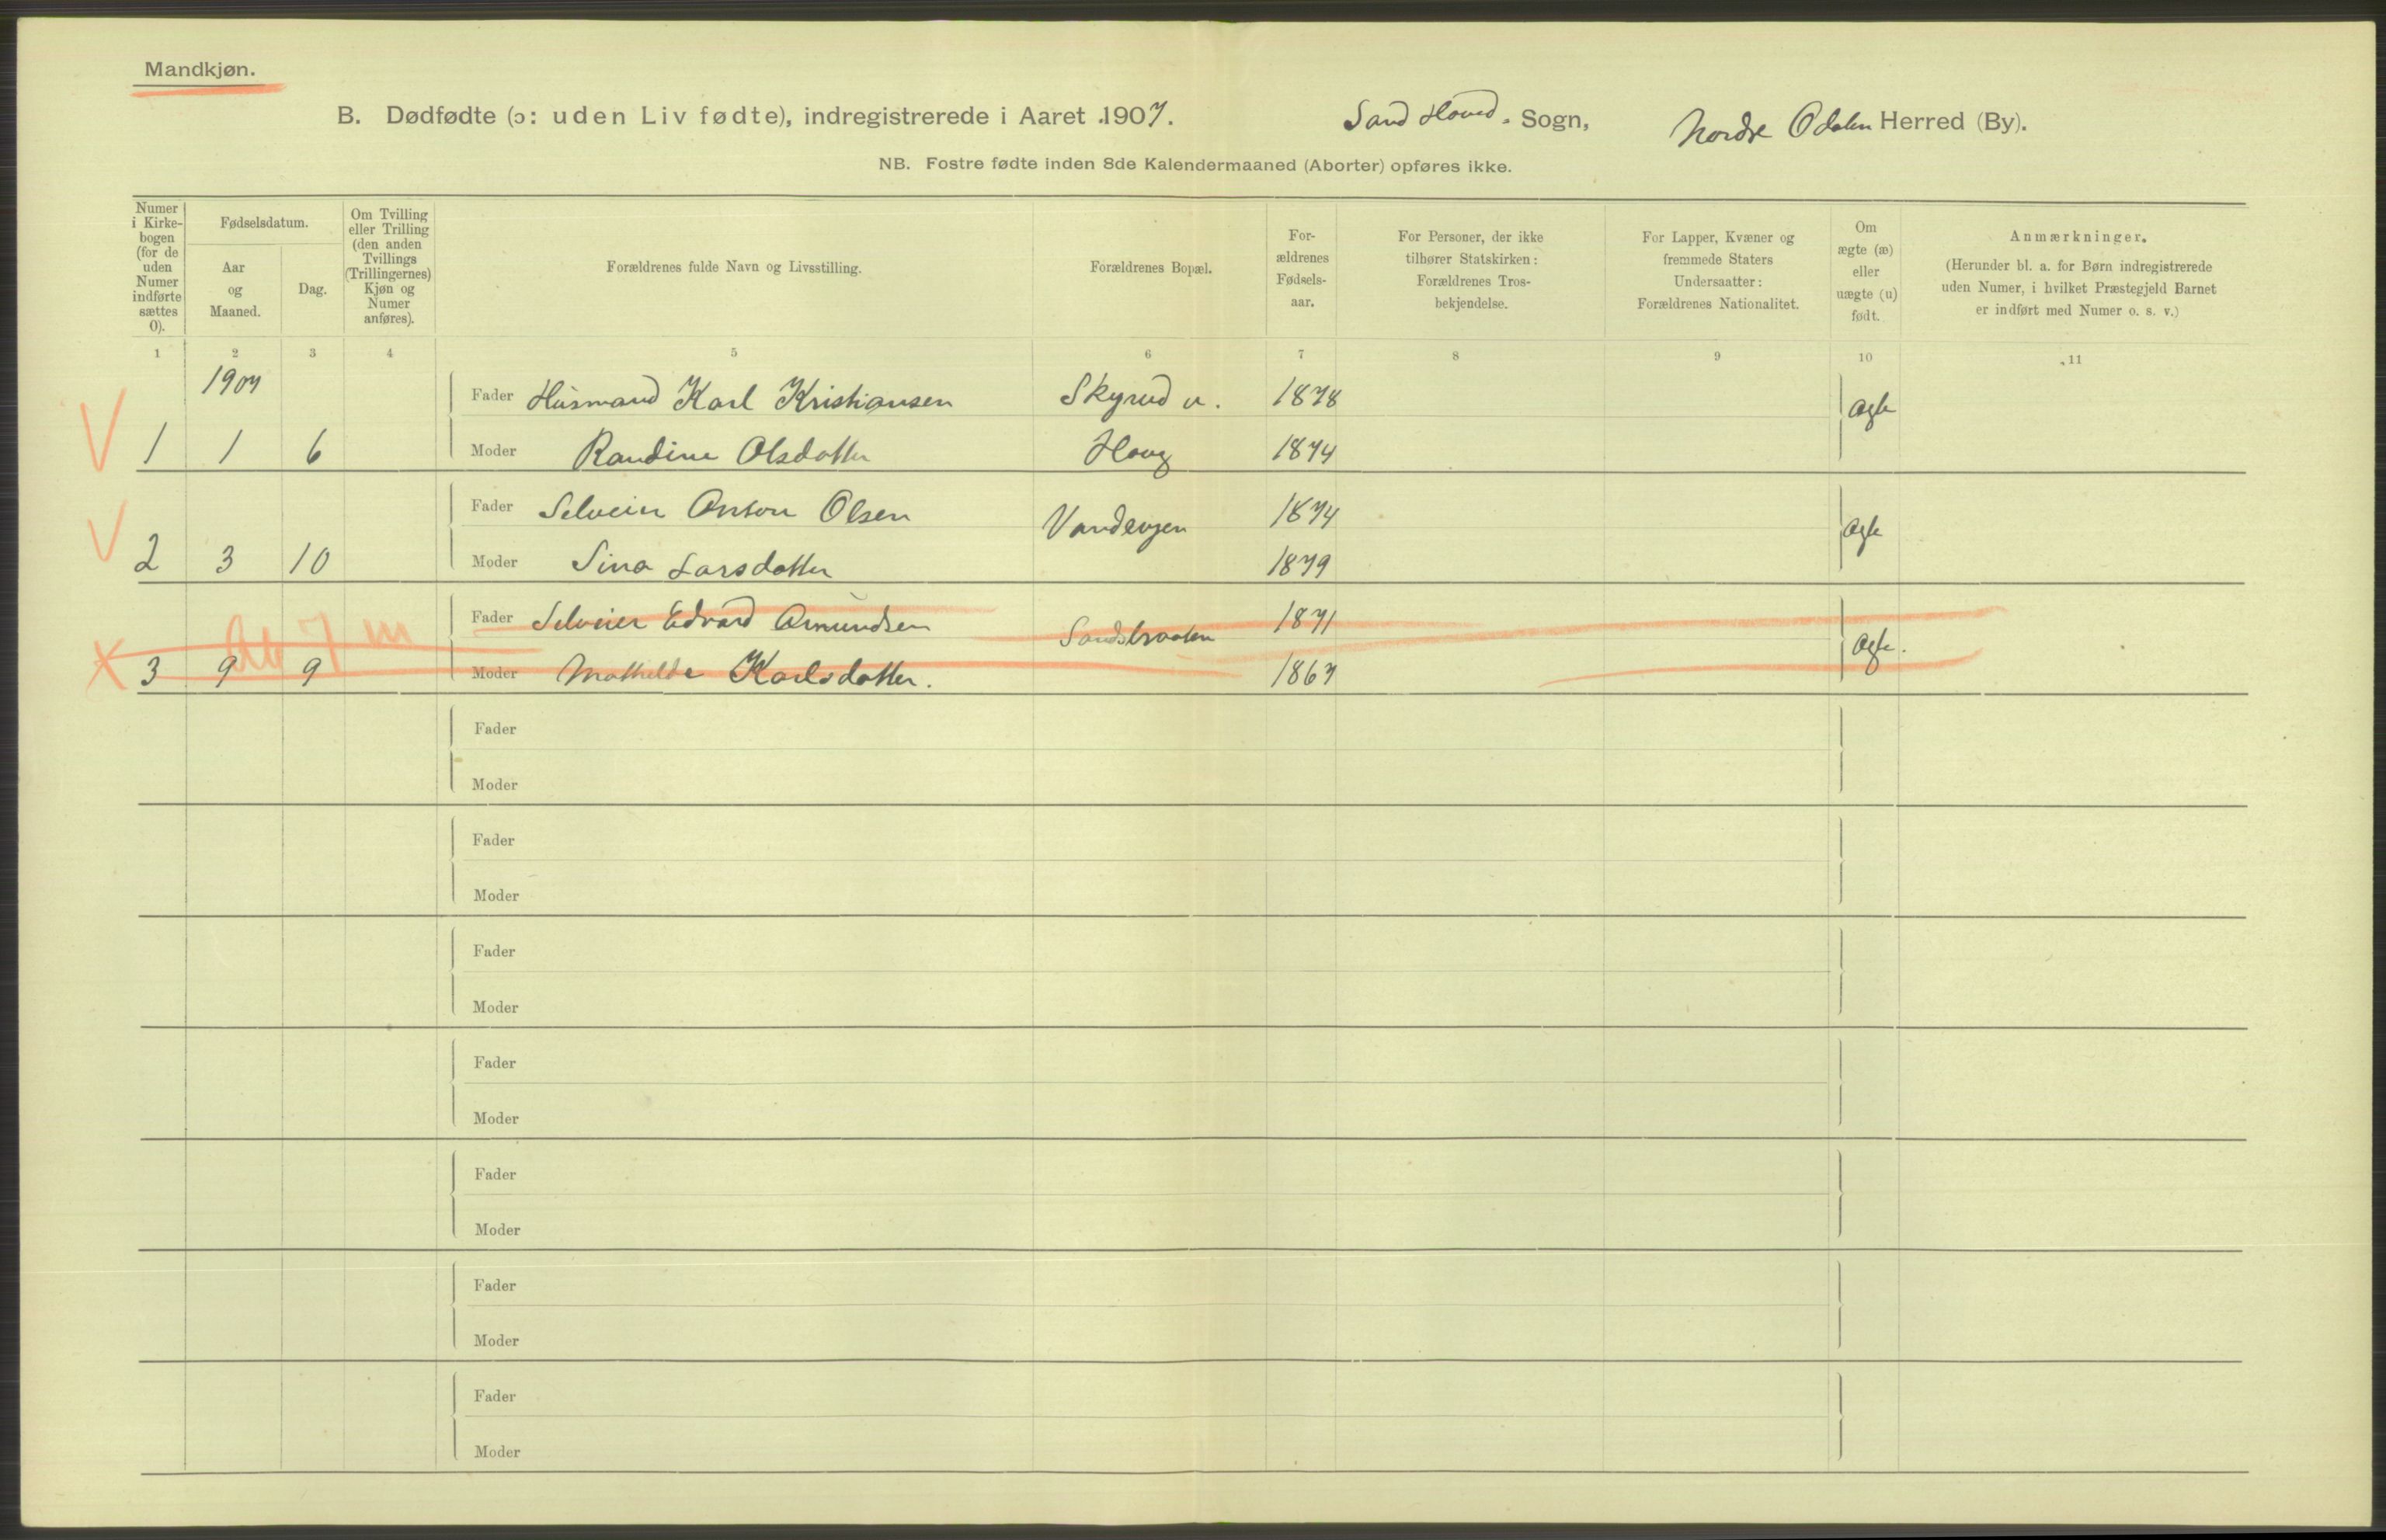 Mandkjøn.
B. Dødfødte (ɔ: uden Liv fødte), indregistrerede i Aaret 1907. Sand Hoved. Sogn, Nordre Odalen Herred (By).
NB. Fostre fødte inden 8de Kalendermaaned (Aborter) opføres ikke.
Numer i Kirkebogen (for de uden Numer indførte sættes 0).
Fødselsdatum.
Aar og Maaned.
Dag.
Om Tvilling eller Trilling (den anden Tvillings (Trillingernes) Kjøn og Numer anføres).
Forældrenes fulde Navn og Livsstilling.
Forældrenes Bopæl.
For-ældrenes Fødsels-aar.
For Personer, der ikke tilhører Statskirken: Forældrenes Tros-bekjendelse.
For Lapper, Kvæner og fremmede Staters Undersaatter: Forældrenes Nationalitet.
Om ægte (æ) eller uægte (u) født.
Anmærkninger. (Herunder bl. a. for Børn indregistrerede uden Numer, i hvilket Præstegjeld Barnet er indført med Numer o. s. v.)
1 2 3 4 5 6 7 8 9 10 11
1907
Fader Husmand Karl Kristiansen Skyrud u. 1878 Ægte
V 1 1 6 Moder Randine Olsdatter Houg 1874
Fader Selveier Anton Olsen Vandengen 1874 Ægte
V 2 3 10 Moder Sina Larsdatter 1879
Fader Selveier Edvard Amundsen Sandsbraaten 1871 Ægte.
Ab 7 m
X 3 9 9 Moder Mathelde Karlsdatter. 1867
Fader
Moder
Fader
Moder
Fader
Moder
Fader
Moder
Fader
Moder
Fader
Moder
Fader
Moder